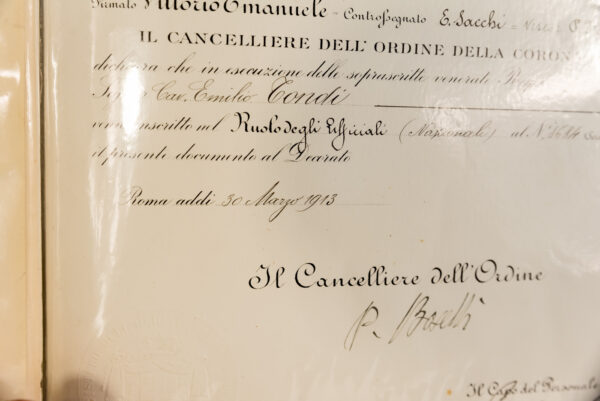 Firmato Vittorio Emanuele - Controssegnato E. Sacchi -
IL CANCELLIERE DELL' ORDINE DELLA CORON
dichiara che in esecuzione delle soprascritte venerate
Cav. Emilio Condi
venne inscritto nel Ruolo degli Ufficiali (Nazionali) al N.
il presente documento al Decorato
Roma addì 30 Marzo 1913
Il Cancelliere dell'Ordine
P. Boselli
Il Capo del Personale